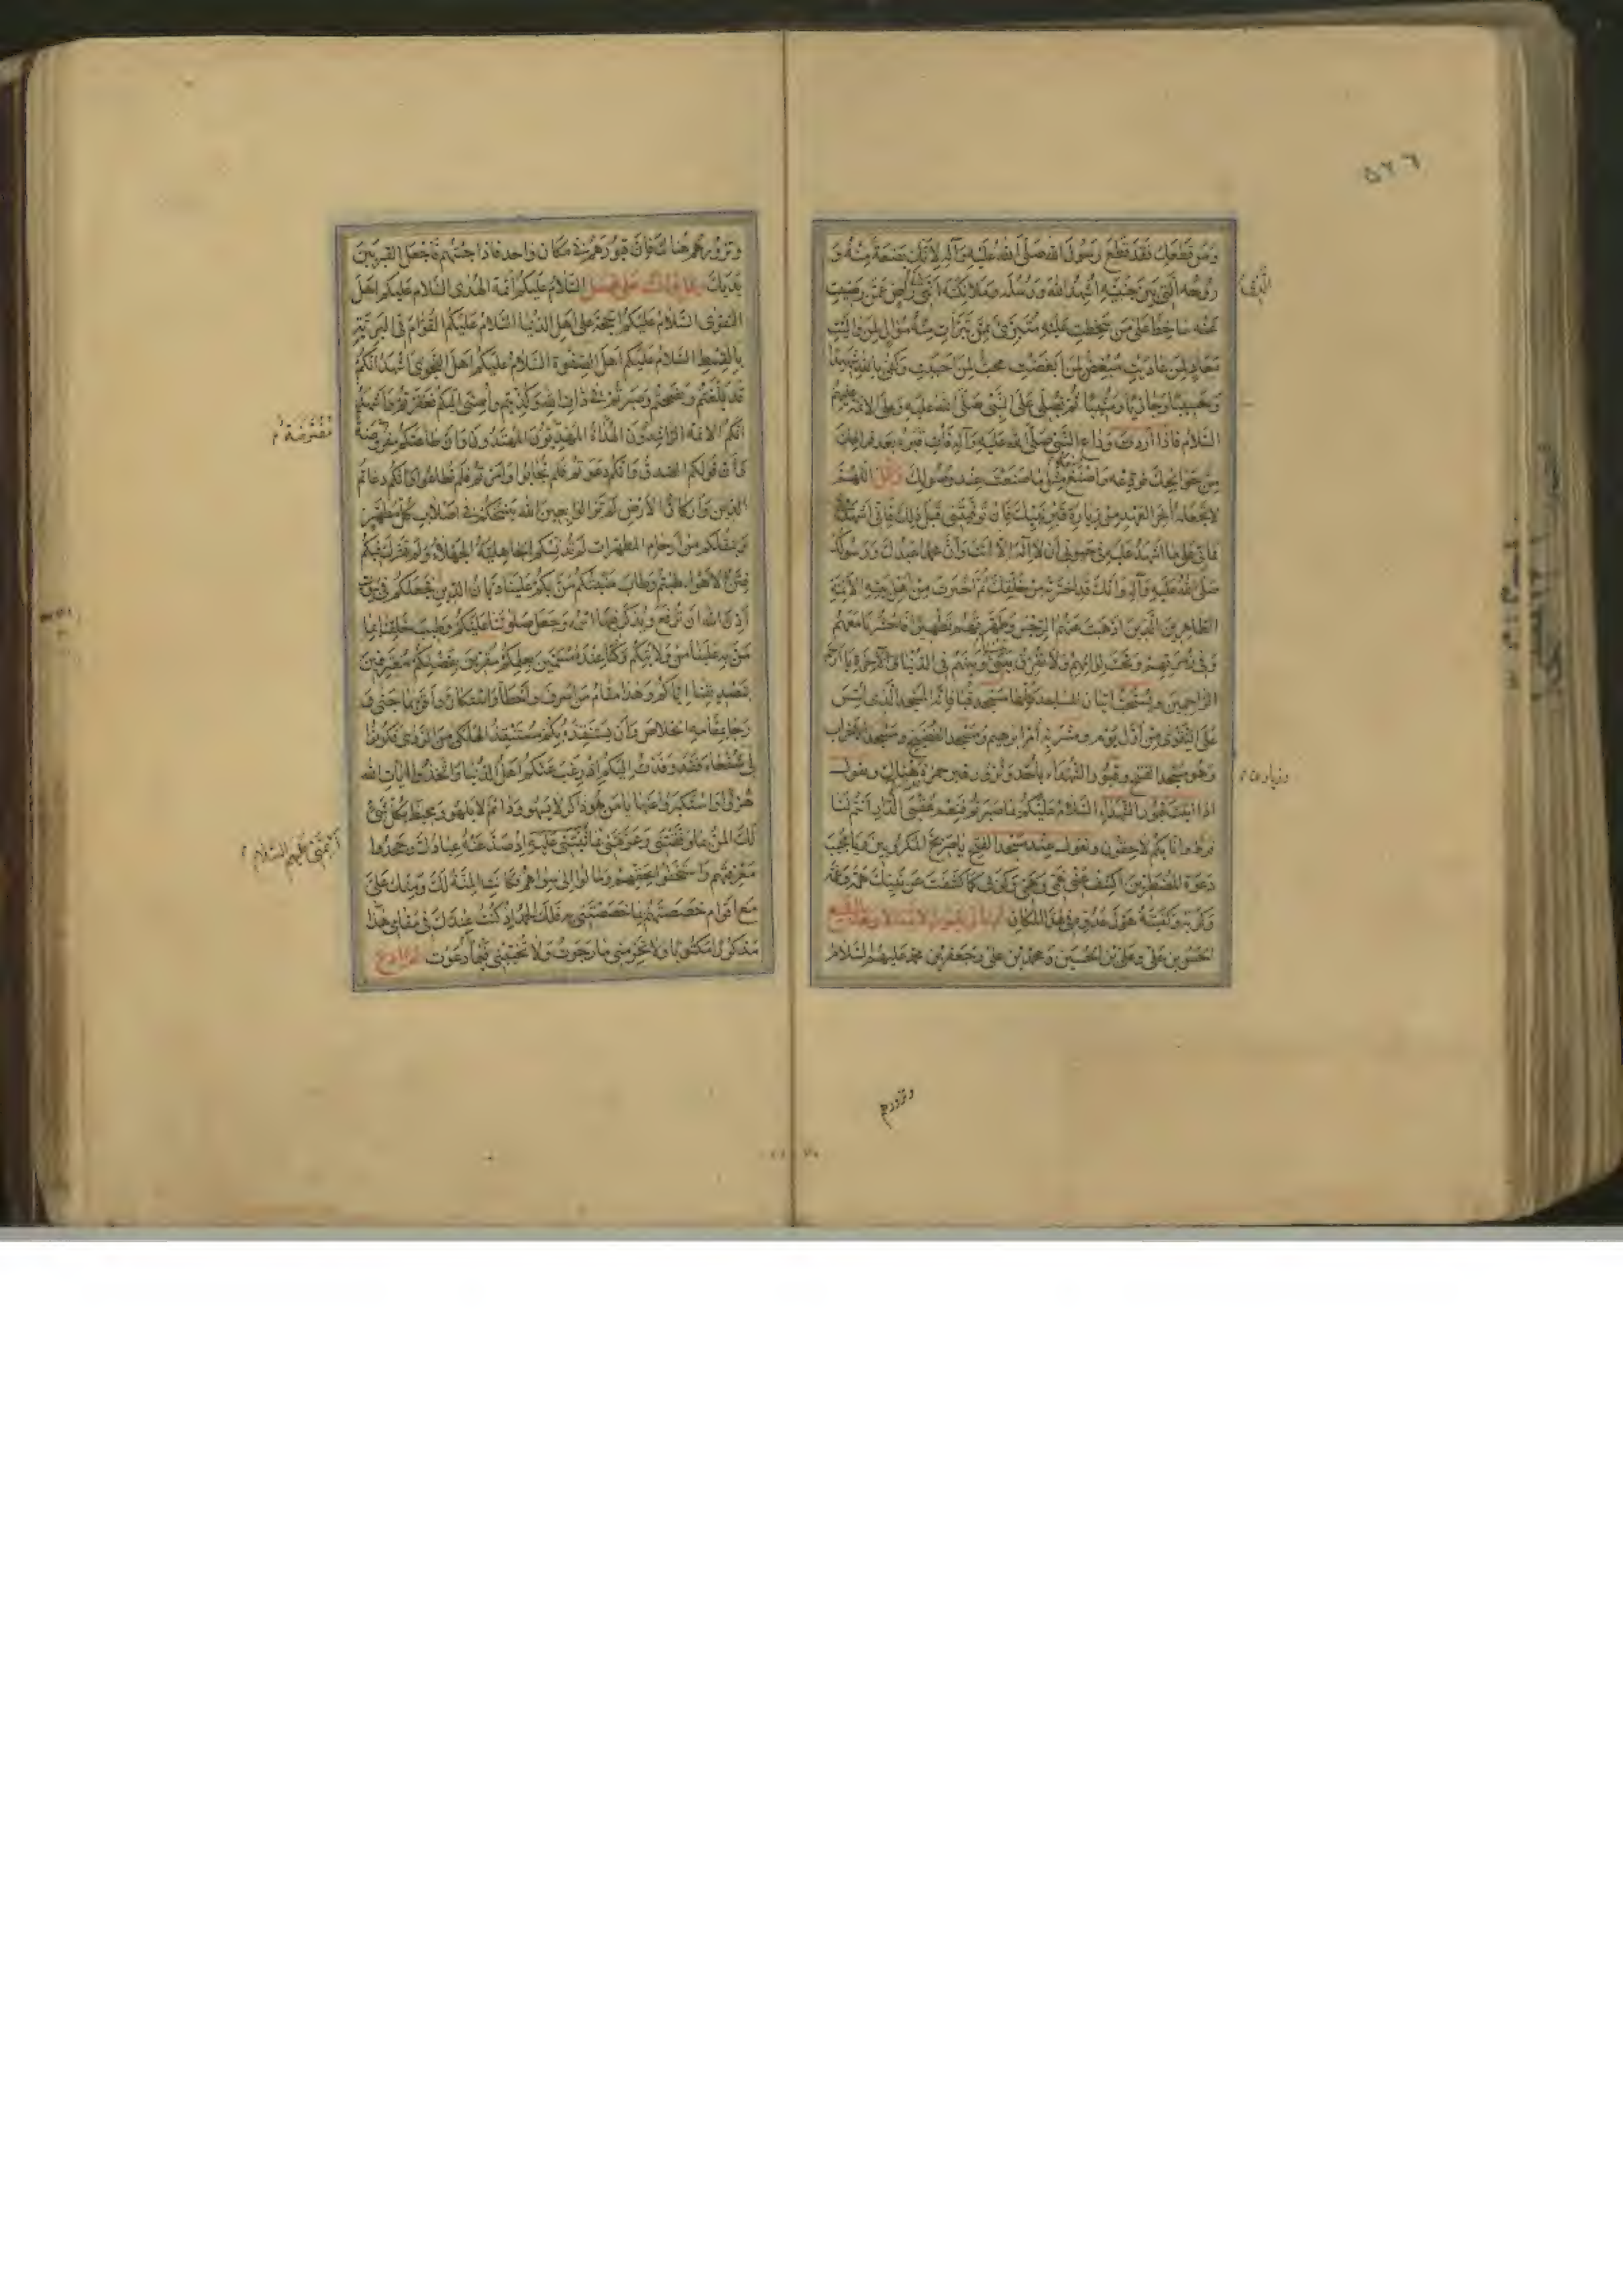 ٥٢٦
ومن قطعك فقد قطع رسول الله صلى الله عليه وآله لانك بضعة منه و
روحه التي بين جنبيه اشهد الله ورسله وملائكته اني راض عمن رضيت
عنه ساخط على من سخطت عليه متبرئ ممن تبرات منه موال لمن واليت
معاد لمن عاديت مبغض لمن ابغضت محب لمن احببت وكفى بالله شهيدا
وحسيبا وجازيا ومثيبا ثم تصلي على النبي صلى الله عليه وعلى الائمة عليهم
السلام فاذا اردت وداع النبي صلى الله عليه وآله فأت قبره بعد فراغك
من حوائجك فودعه واصنع مثل ما صنعت عند وصولك وقل اللهم
لا تجعله آخر العهد من زيارة قبر نبيك فان توفيتني قبل ذلك فاني اشهد
في مماتي على ما اشهد عليه في حيوتي ان لا اله الا انت وان محمدا عبدك ورسولك
صلى الله عليه وآله وانك قد اخترته من خلقك ثم اخترت من اهل بيته الائمة
الطاهرين الذين اذهبت عنهم الرجس وطهرتهم تطهيرا فاحشرنا معهم
وفي زمرتهم وتحت لوائهم ولا تفرق بيني وبينهم في الدنيا والآخرة يا ارحم
الراحمين ويستحب اتيان المساجد كلها مسجد قبا فانه المسجد الذي اسس
على التقوى من اول يوم ومشربة ام ابراهيم ومسجد الفضيخ ومسجد الاحزاب
وهو مسجد الفتح وقبور الشهداء باحد وتزور قبر حمزة هناك وتقول
اذا اتيت قبور الشهداء السلام عليكم بما صبرتم فنعم عقبى الدار انتم لنا
فرط وانا بكم لاحقون وتقول عند مسجد الفتح يا صريخ المكروبين ويا مجيب
دعوة المضطرين اكشف عني غمي وهمي وكربي كما كشفت عن نبيك همه وغمه
وكربه وكفيته هول عدوه في هذا المكان
الحسن بن علي وعلي بن الحسين ومحمد بن علي وجعفر بن محمد عليهم السلام
وتزورهم
وتزورهم هناك فان قبورهم في مكان واحد فاذا جئتهم فاجعل القبر بين
يديك السلام عليكم ائمة الهدى السلام عليكم اهل
التقوى السلام عليكم الحجة على اهل الدنيا السلام عليكم القوام في البرية
بالقسط السلام عليكم اهل الصفوة السلام عليكم اهل النجوى اشهد انكم
قد بلغتم ونصحتم وصبرتم في ذات الله وكذبتم واسئ اليكم فغفرتم واشهد
انكم الائمة الراشدون الهداة المهتدون وان طاعتكم مفروضة
مفترضة
وان قولكم الصدق وانكم دعوتم فلم تجابوا وامرتم فلم تطاعوا وانكم دعائم
الدين واركان الارض لم تزالوا بعين الله ينسخكم في اصلاب كل مطهر
وينقلكم من ارحام المطهرات لم تدنسكم الجاهلية الجهلاء ولم تشرك فيكم
فتن الاهواء طبتم وطاب منبتكم من بكم علينا ديان الدين فجعلكم في بيوت
اذن الله ان ترفع ويذكر فيها اسمه وجعل صلوتنا عليكم وطيب خلقنا بما
من به علينا من ولايتكم وكنا عنده مسمين بعلمكم مقرين بفضلكم معترفين
بتصديقنا اياكم وهذا مقام من اسرف واخطأ واستكان واقر بما جنى و
رجا بمقامه الخلاص وان يستنقذه بكم مستنقذ الهلكى من الردى فكونوا
لي شفعاء فقد وفدت اليكم اذ رغب عنكم اهل الدنيا واتخذوا آيات الله
هزوا واستكبروا عنها يا من هو ذاكر لا يسهو ودائم لا يلهو ومحيط بكل شئ
لك المن بما وفقتني وعرفتني بما ثبتني عليه اذ صد عنه عبادك وجحدوا
أئمتي عليهم السلام
معرفتهم واستخفوا بحقهم ومالوا الى سواهم وكانت المنة لك ومنك علي
مع اقوام خصصتهم بما خصصتني به فلك الحمد اذ كنت عندك في مقامي هذا
مذكورا مكتوبا ولا تحرمني ما رجوت ولا تخيبني فيما دعوت